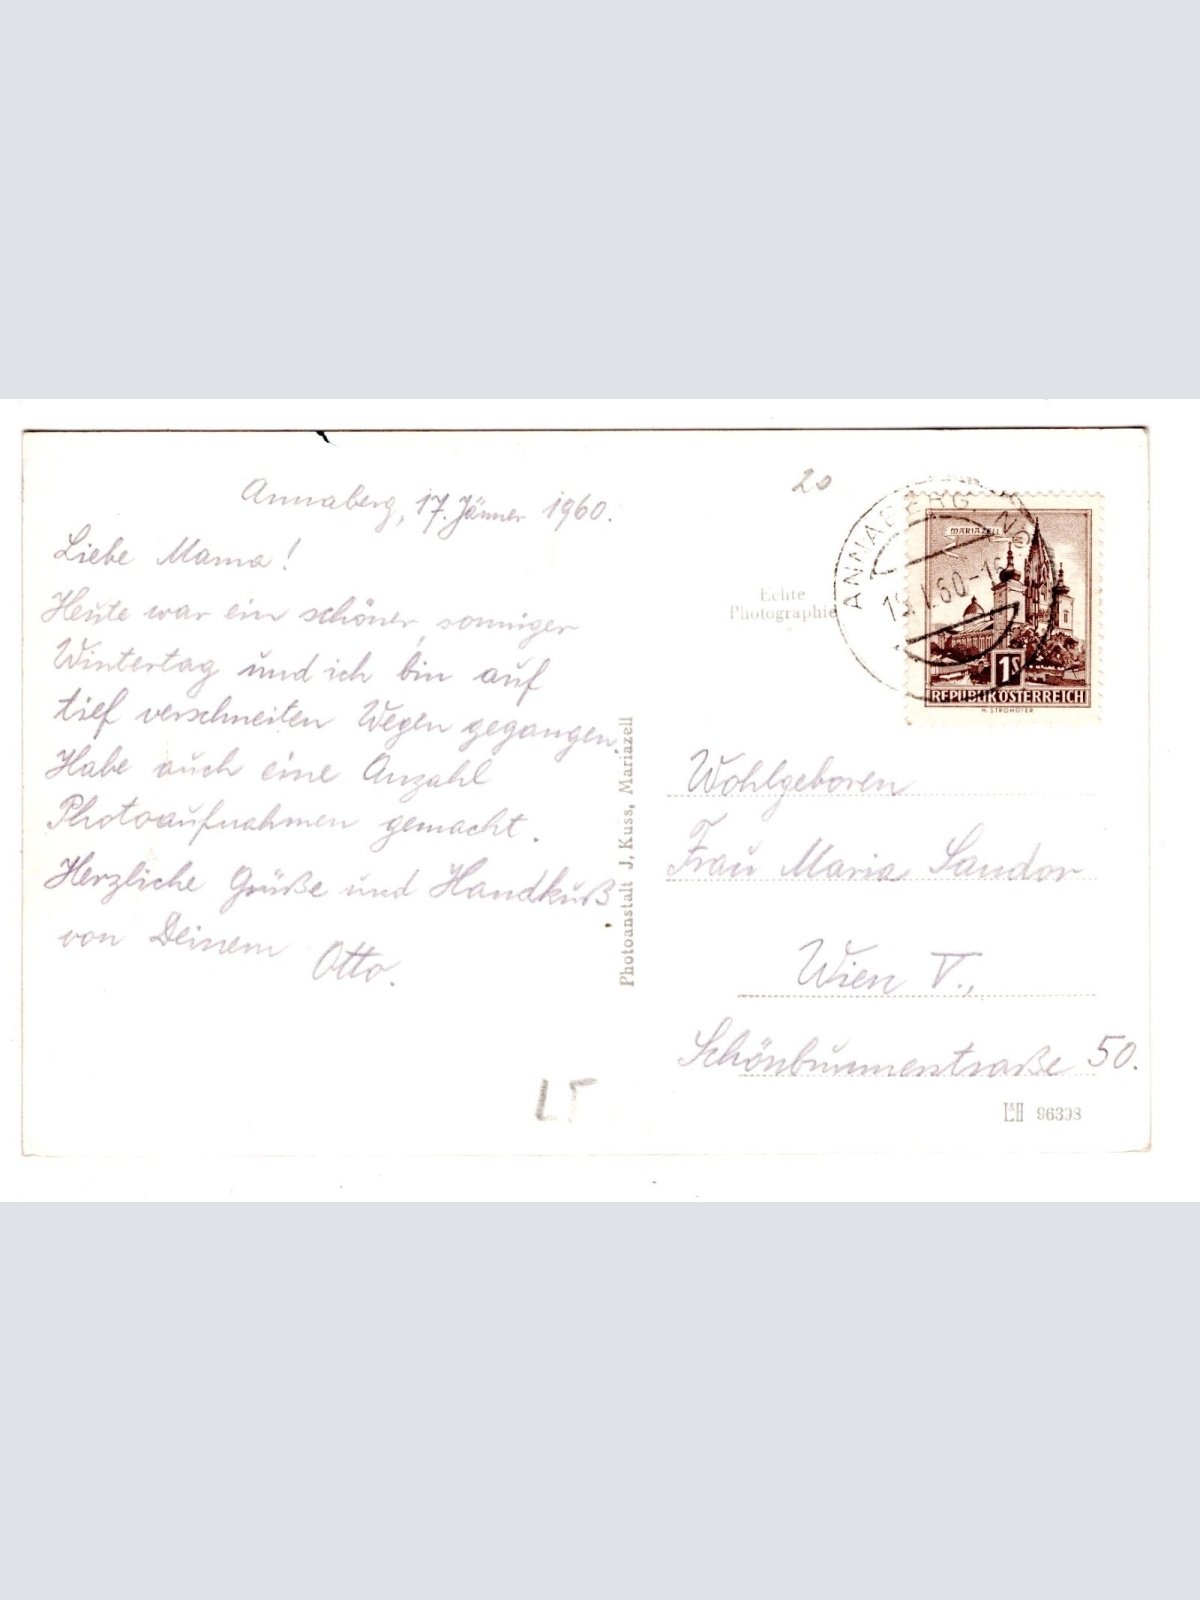 Annaberg, 17. Jänner 1960.
Liebe Mama!
Heute war ein schöner, sonniger
Wintertag und ich bin auf
tief verschneiten Wegen gegangen.
Habe auch eine Anzahl
Photoaufnahmen gemacht.
Herzliche Grüße und Handkuß
von Deinem
Otto.
LT
Photoanstalt J. Kuss, Mariazell
20
Echte
Photographie
ANNABERG, NÖ
MARIAZELL
1S
REPUBLIK ÖSTERREICH
H. STROHOFER
Wohlgeboren
Frau Maria Sandor
Wien V.,
Schönbrunnerstraße 50.
L&H 96398